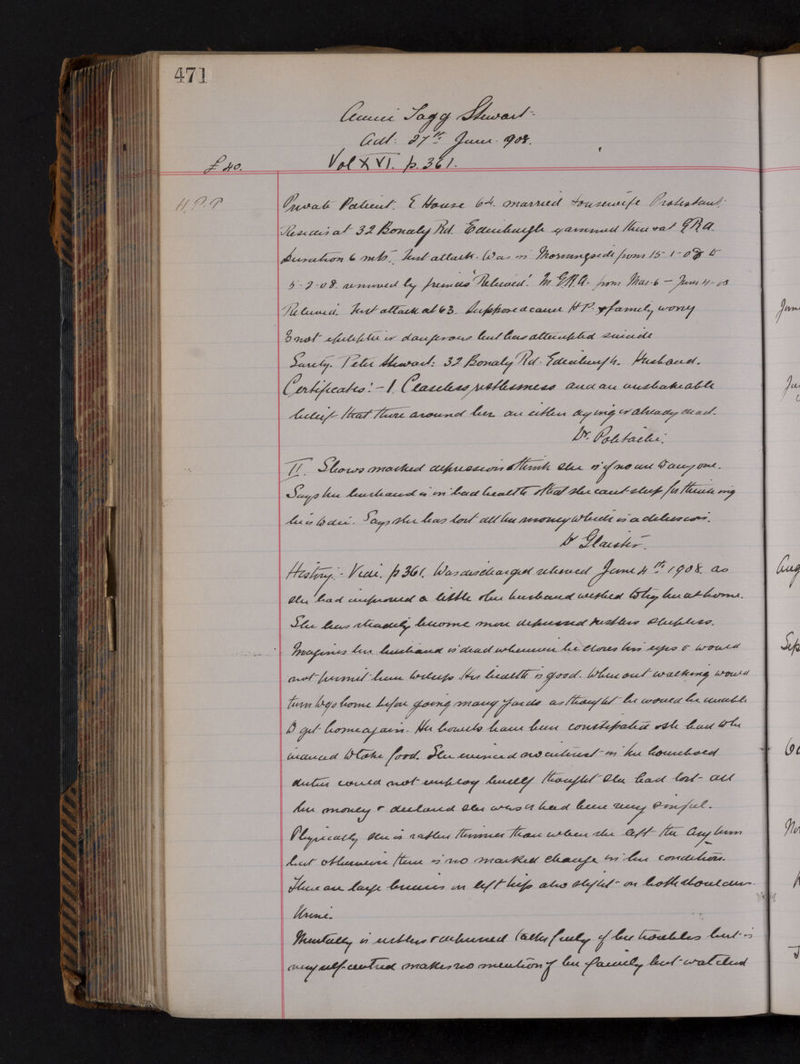 471
Annie Tagg Stewart.
Adt. 27th June 908.
£40. Vol XVI. p. 361.
H.P.P Private Patient. E House 64. married Housewife Protestant.
Resides at 32 Bonaly Rd. Edinburgh examined there at
Duration 6 mts. first attack. Was in Morningside from 15-1-08 to
5-2-08. removed by friends "Relieved". In from Mar 6 - June 4-08
Relieved. First attack at 63. Supposed cause H.P. & family worry
Is not epileptic or dangerous but has attempted suicide
Surety. Peter Stewart: 32 Bonaly Rd. Edinburgh. Husband.
Certificates: - I. Ceaseless restlessness and an unshakeable
belief that those around her are either dying or already dead.
Dr.
II. Shows marked depression & thinks she is of no use to any one.
Says her husband is in bad health & that she cant sleep for thinking
he is to die. Says she has lost all her money which is a delusion.
Dr Glaister.
History: - Vide. p 361. Was discharged relieved June 4th 1908. as
she had improved a little & her husband wished to try her at home.
She has steadily become more depressed restless & sleepless.
Imagines her husband is dead whenever he closes his eyes & would
not permit him to sleep. His health is good. When out walking would
turn to go home before going many yards as thought he would be unable
to get home again. Her bowels have been constipated & she had to be
induced to take food. She evinced no interest in her household
duties could not employ herself thought she had lost all
her money & declared she was & had been very sinful.
Physically she is rather thinner than when she left the Asylum
but otherwise there is no marked change in her condition.
There are large bruises on left hip also slight on both shoulders.
Urine.
Mentally is restless & depressed talks freely of her troubles but is
very self centred makes no mention of her family but watched